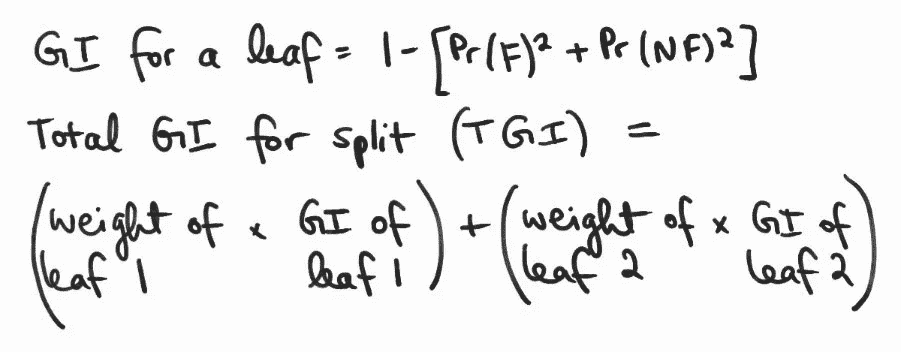 GI for a leaf = 1 - [Pr(F)² + Pr(NF)²]
Total GI for split (TGI) =
(weight of leaf 1 × GI of leaf 1) + (weight of leaf 2 × GI of leaf 2)